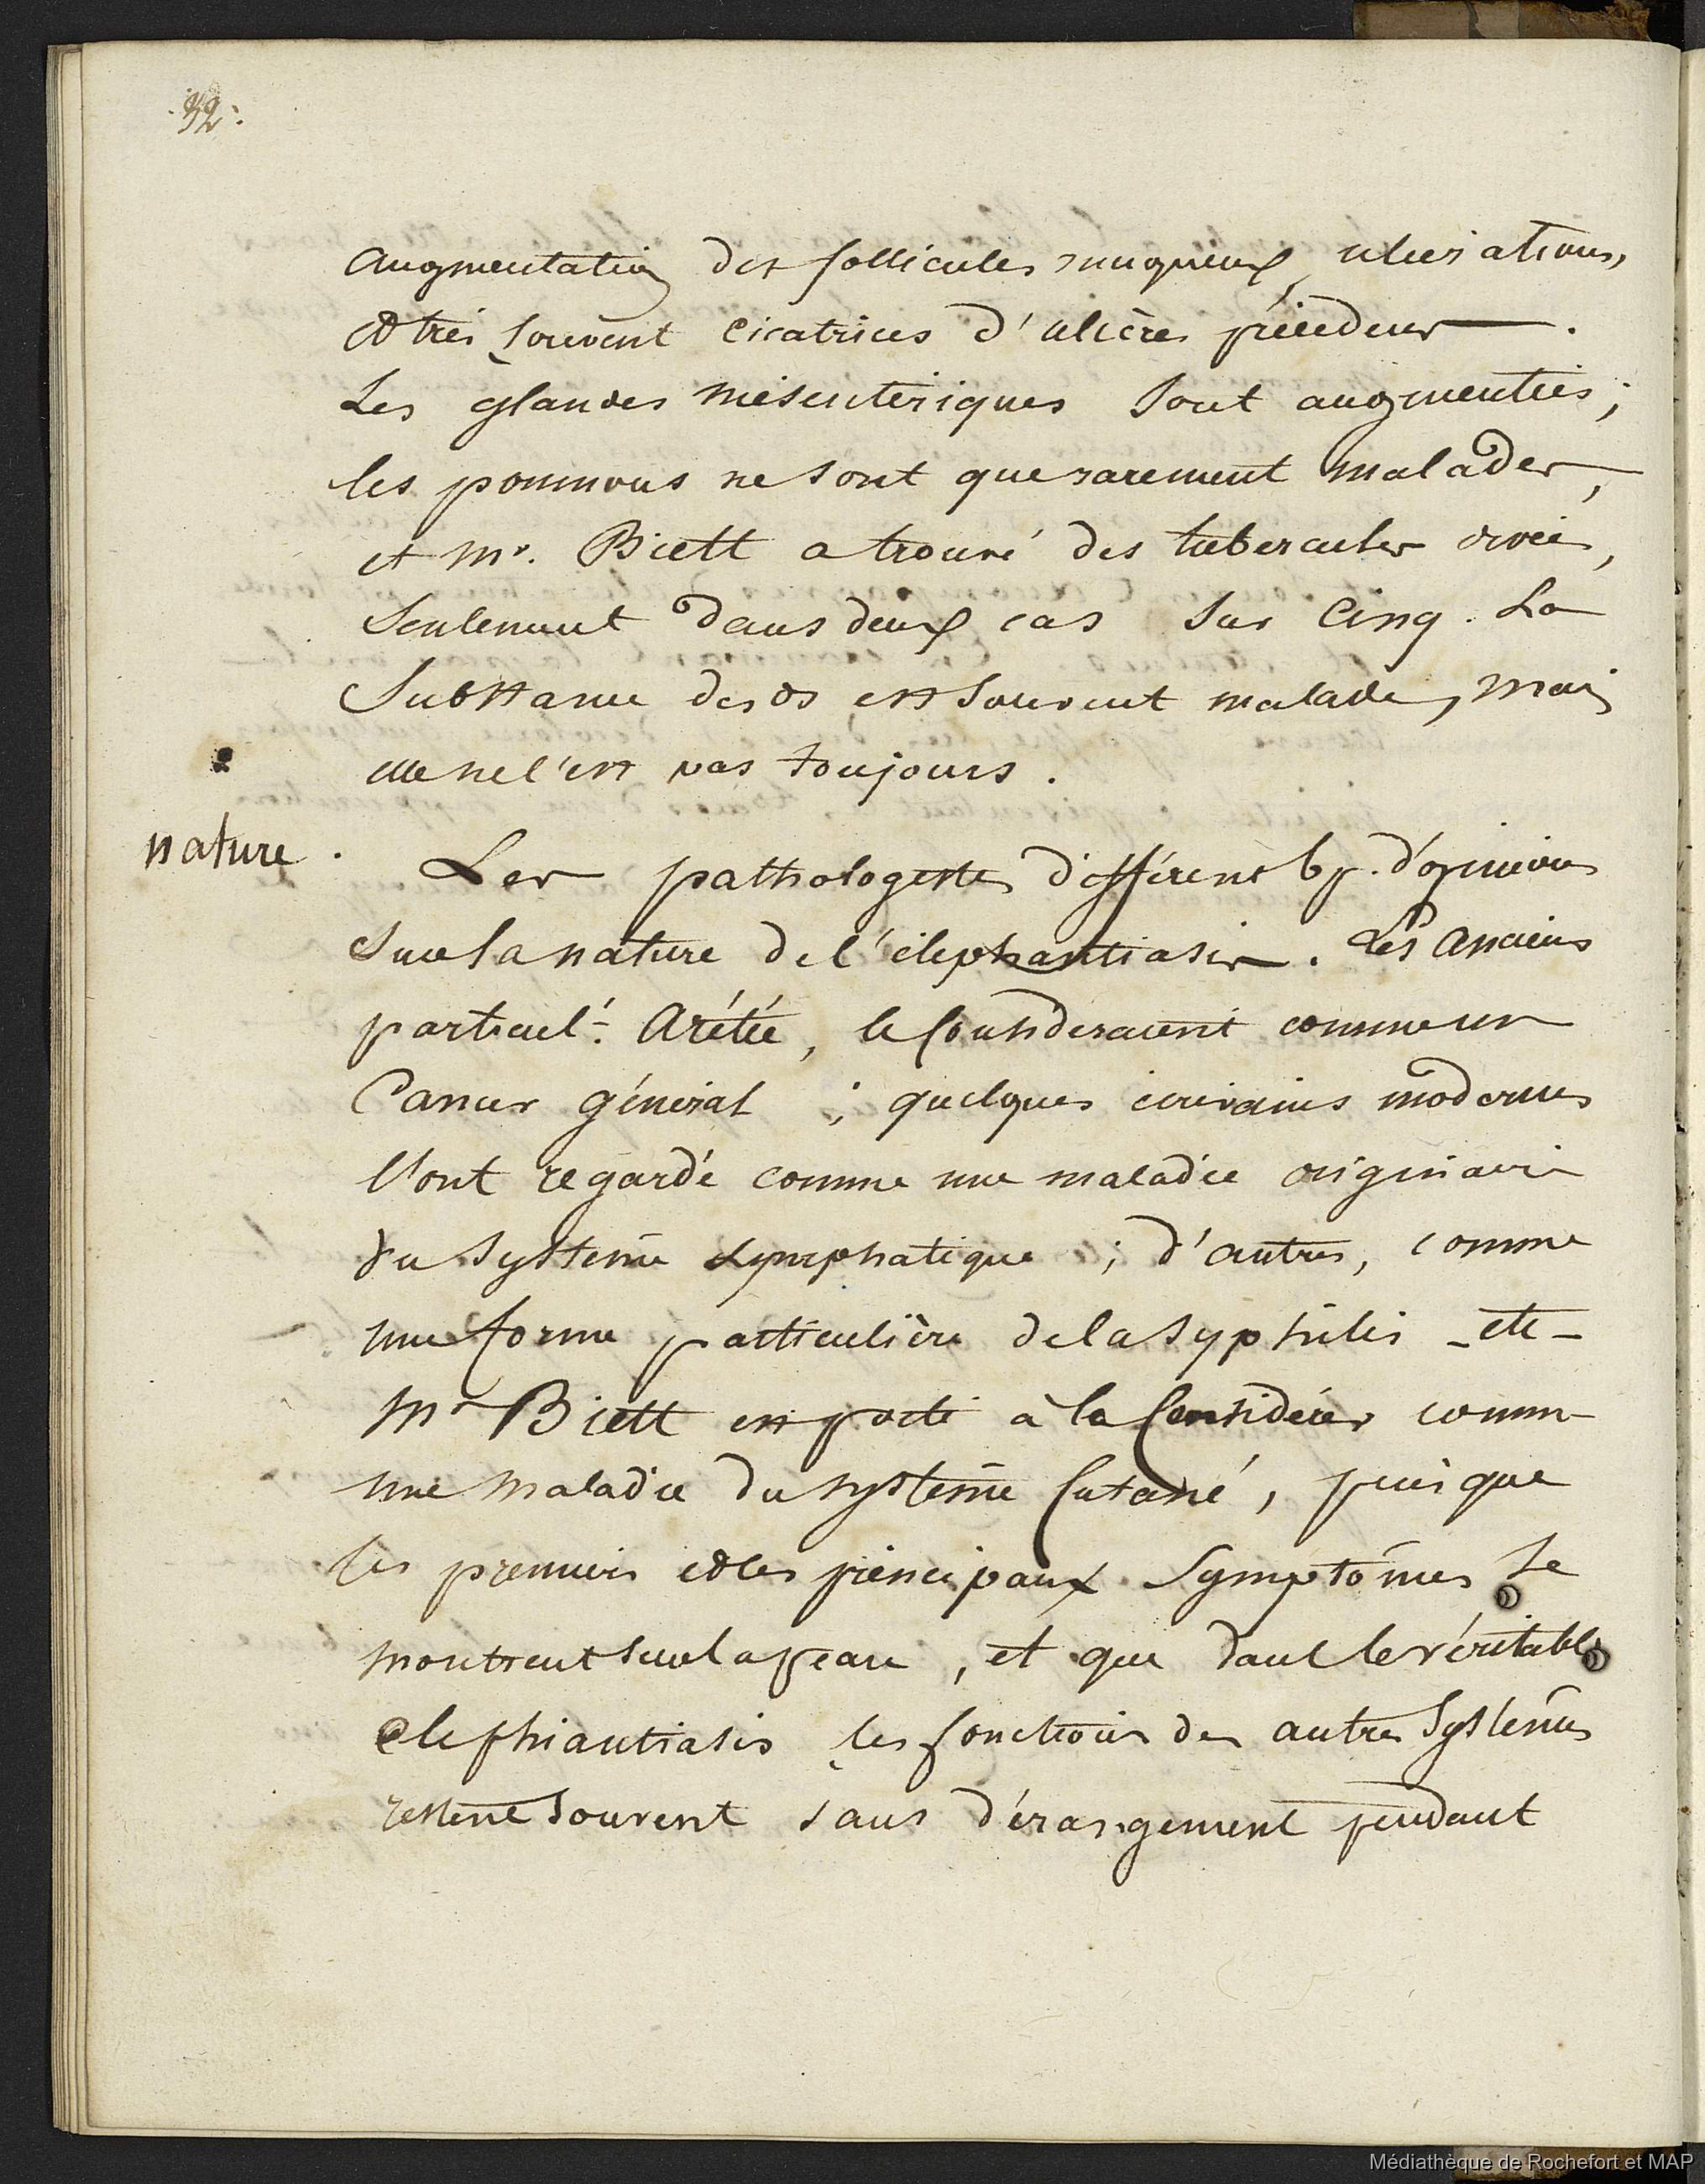 32.
augmentation des follicules muqueux, ulcérations,
et très souvent cicatrices d'ulcères précédens.
Les glandes mésentériques sont augmentées;
les poumons ne sont que rarement malades,
et Mr. Biett a trouvé des tubercules
seulement dans deux cas sur cinq. La
substance des os est souvent malade, mais
elle ne l'est pas toujours.
nature.
Les pathologistes diffèrent bp. d'opinions
sur la nature de l'éléphantiasis. Les anciens
particult. Arétée, le considéraient comme un
Cancer général; quelques écrivains modernes
l'ont regardé comme une maladie originaire
du système lymphatique; d'autres, comme
une forme particulière de la syphilis - etc -
Mr Biett est porté à la considérer comme
une maladie du système cutané, puisque
les premiers et les principaux symptômes se
montrent sur la peau, et que dans le véritable
elephiantiasis les fonctions des autres systèmes
restent souvent sans dérangement pendant
Médiathèque de Rochefort et MAP